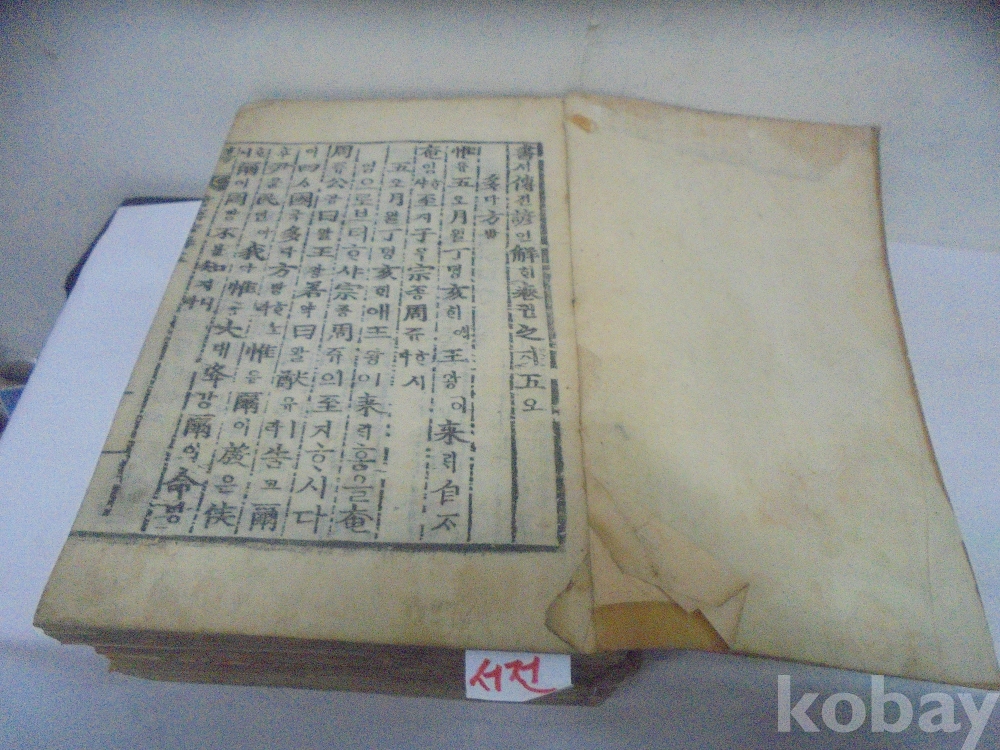 書셔傳젼諺언解ᄒᆡ卷권之지五오
多다方방
惟유五오月월丁뎡亥ᄒᆡ예王왕이來ᄅᆡ自ᄌᆞ
奄엄ᄒᆞ샤至지于우宗종周쥬ᄒᆞ시다
五오月월丁뎡亥ᄒᆡ애王왕이來ᄅᆡ홈을奄
엄으로브터ᄒᆞ샤宗종周쥬의至지ᄒᆞ시다
周쥬公공曰왈王왕若약曰왈猷유ㅣ라告고爾
이四ᄉᆞ國국多다方방ᄒᆞ노라惟유爾이殷은侯
후尹윤民민아我아惟유大대降강爾이命명
爾이罔망不블知지
서전
kobay